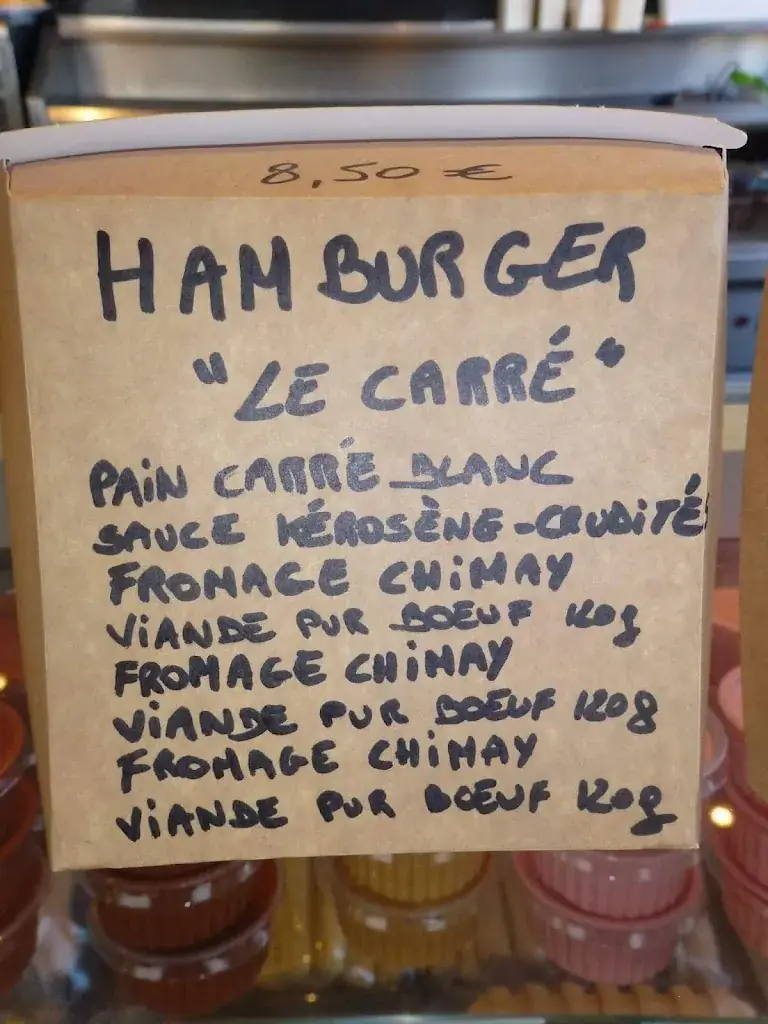 8,50 €
HAMBURGER
"LE CARRÉ"
PAIN CARRÉ BLANC
SAUCE KÉROSÈNE-CRUDITÉS
FROMAGE CHIMAY
VIANDE PUR BOEUF 120g
FROMAGE CHIMAY
VIANDE PUR BOEUF 120g
FROMAGE CHIMAY
VIANDE PUR BOEUF 120g